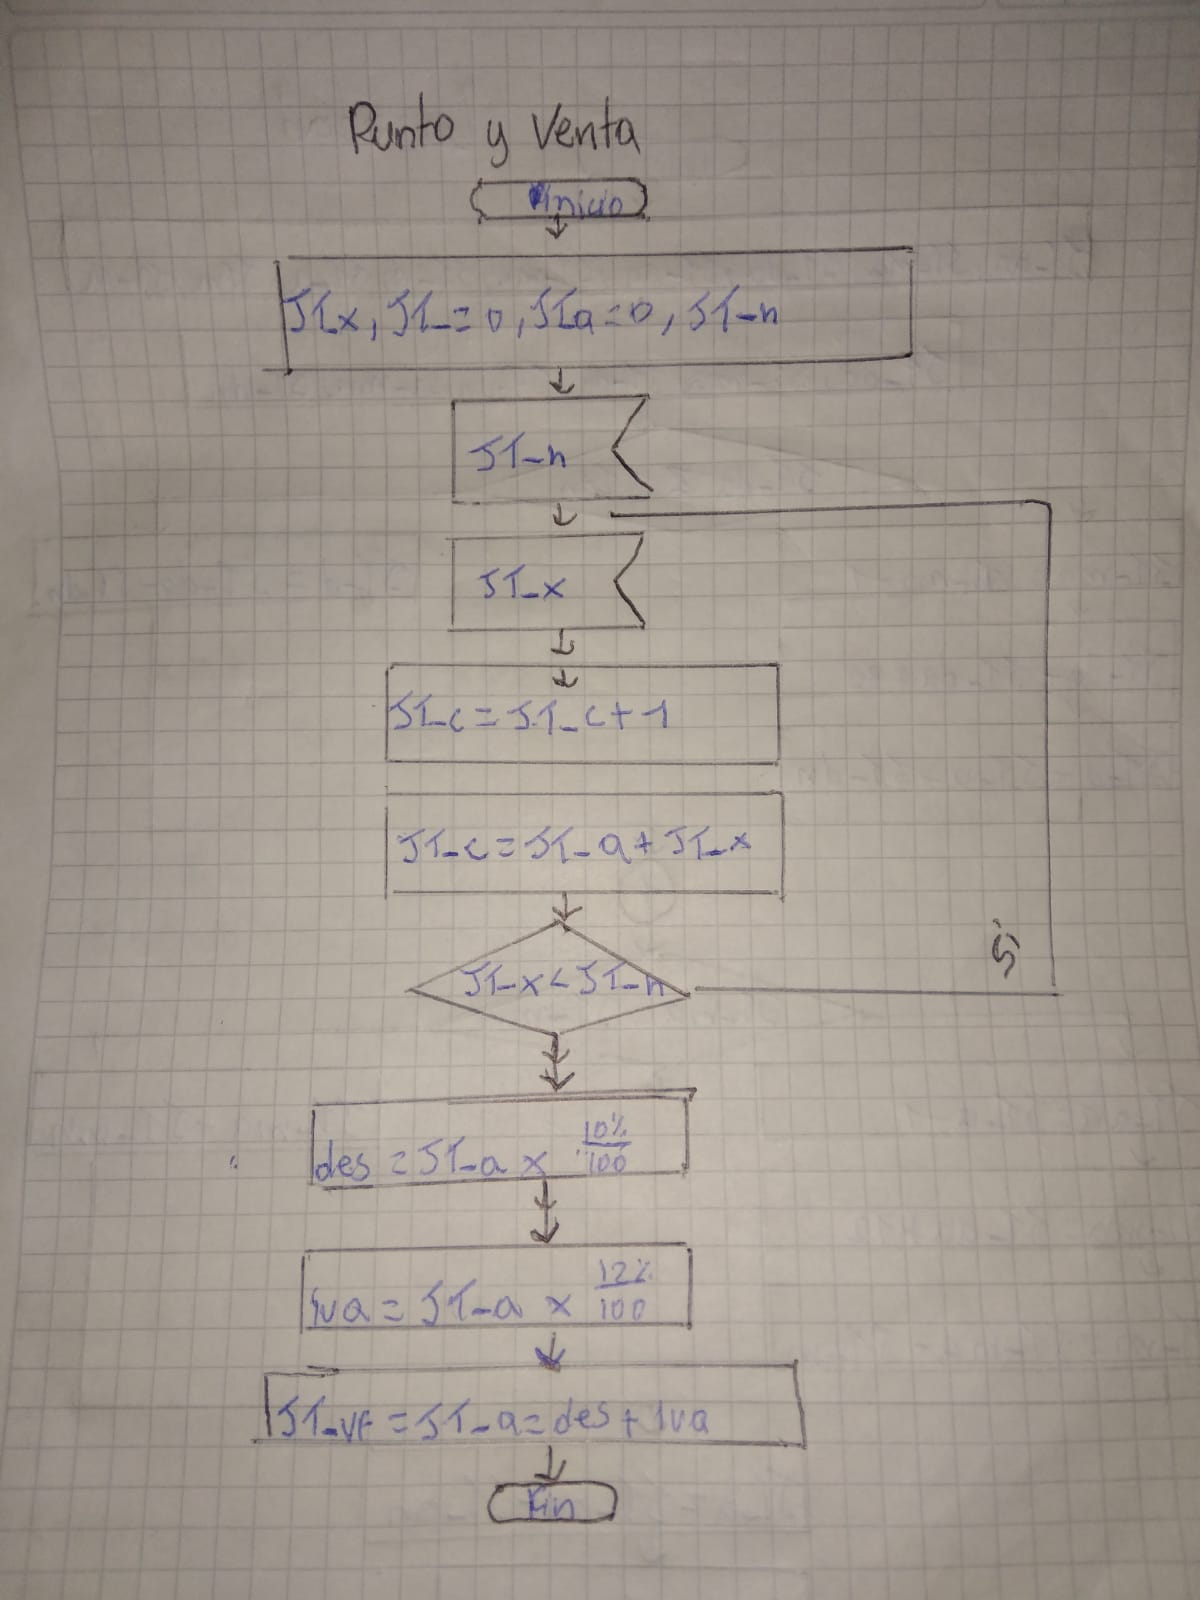 Punto y Venta
Inicio
JT_x, JT_=0, JT_a=0, JT_n
JT_n
JT_x
JT_c=JT_c+1
JT_c=JT_a+JT_x
JT_x<JT_n
Si
des=JT_a x 10%/100
iva=JT_a x 12%/100
JT_VF=JT_a=des+iva
Fin